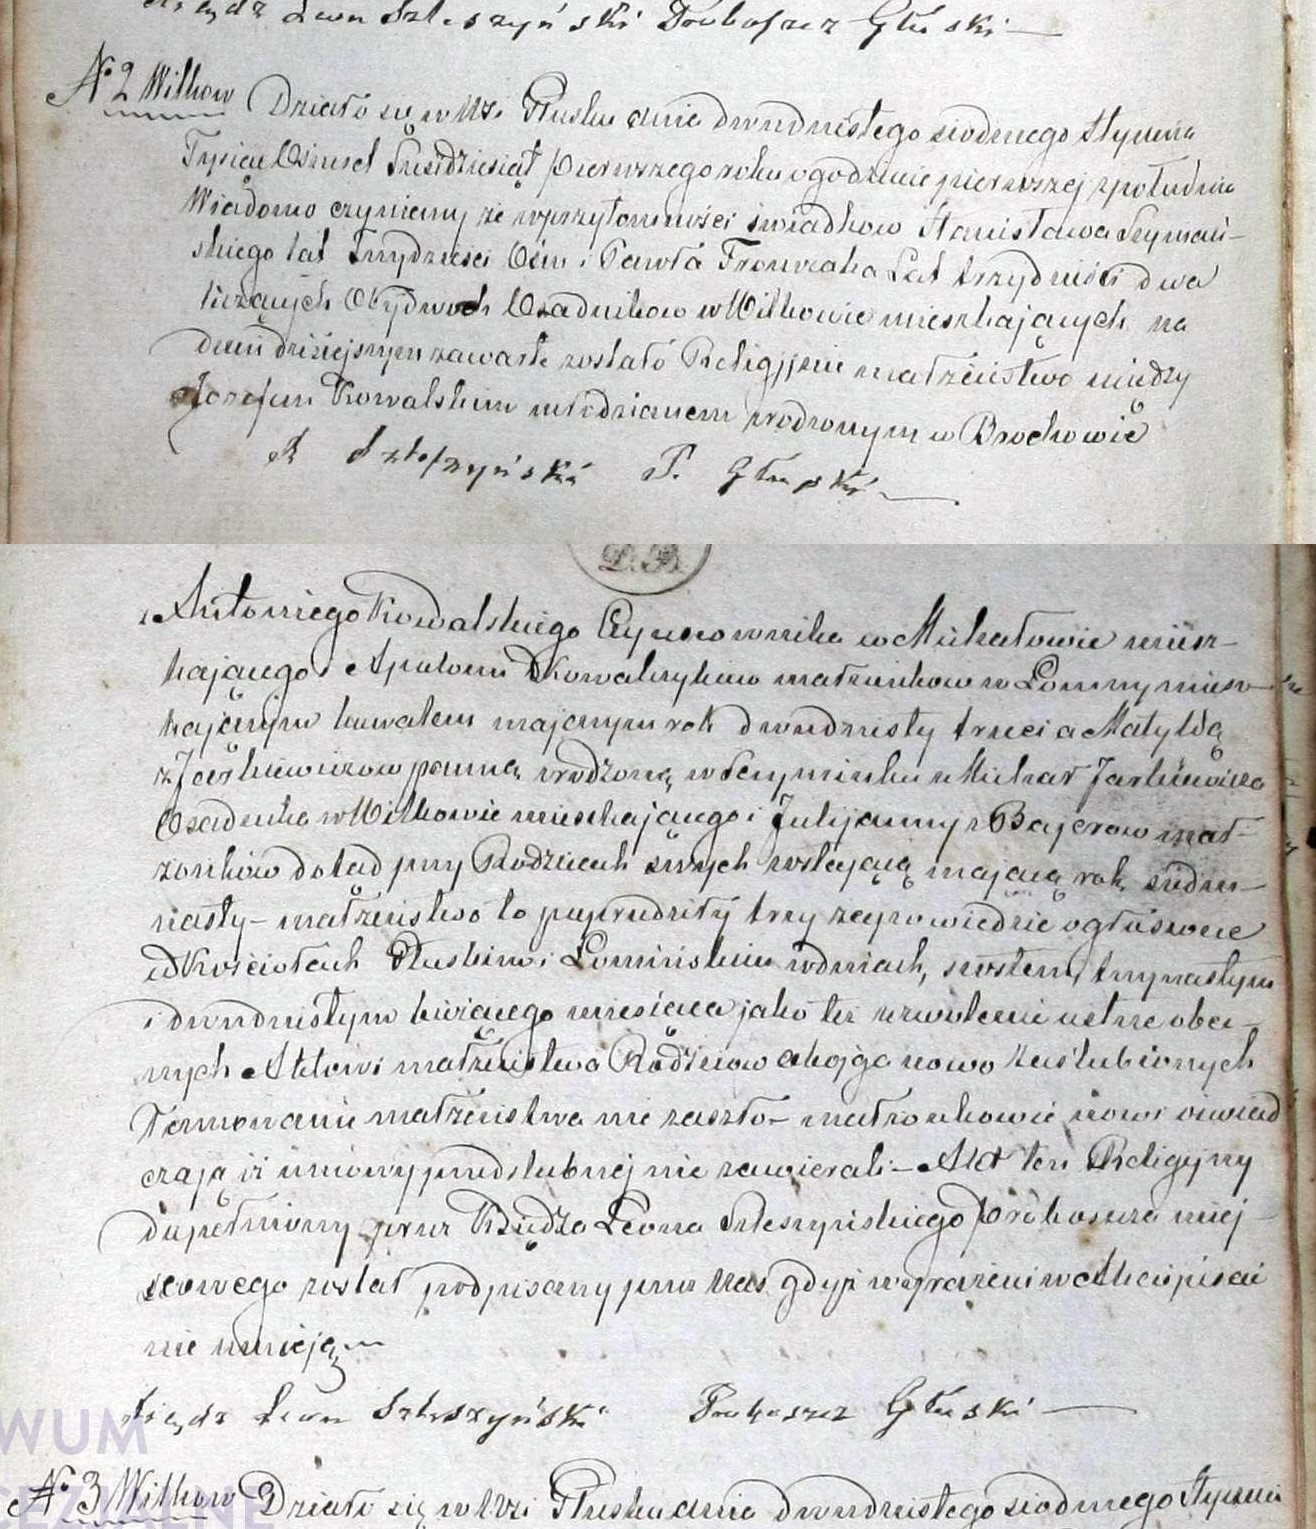 Ksiądz Leon Szleszyński Proboszcz Głuski
№ 2 Wilkow Działo się w Wsi Głusku dnia dwudziestego siodmego Stycznia
Tysiąc Osmset Sześdziesiąt pierwszego roku o godzinie pierwszej z południa
Wiadomo czyniemy że w przytomności świadkow Stanisława Szymań-
skiego lat Trzydzieści Ośm i Pawła Fronczaka Lat trzydzieści dwa
liczących Obydwoch Osadnikow w Wilkowie mieszkających na
dniu dzisiejszym zawarte zostało Religijnie małżeństwo między
Jozefem Kowalskim młodzianem urodzonym w Brochowie
X Szleszyński P. Głuski
z Antoniego Kowalskiego Czynszownika w Michałowie miesz-
kającego i Apolonii Kowalczykow małżonkow w Łomny miesz-
kającym kawalerem mającym rok dwudziesty trzeci a Matyldą
z Jaśkiewiczow panną urodzoną w Secyminku z Michał Jaśkiewicza
Osadnika w Wilkowie mieszkającego i Julijanny z Bajerow mał-
żonków dotąd przy Rodzicach swych zostającą mającą rok siedm-
nasty – małżeństwo to poprzedziły trzy zapowiedzie ogłoszone
w Kościołach Głuskim i Łomińskim w dniach, szostem, trzynastym
i dwudziestym bieżącego miesiąca jako też zezwolenie ustne obec-
nych Aktowi małżeństwa Rodzicow obojga nowo zaślubionych
Tamowanie małżeństwa nie zaszło – małżonkowie nowi oświad
czają iż umowy przedslubnej nie zawierali – Akt ten Religijny
dopełniony przez Księdza Leona Szleszyńskiego Proboszcza miej-
scowego został podpisany przez Nas gdyż wyrażeni w Akcie pisać
nie umieją
Ksiądz Leon Szleszyński Proboszcz Głuski
№ 3 Wilkow Działo się w Wsi Głusku dnia dwudziestego siodmego Stycznia